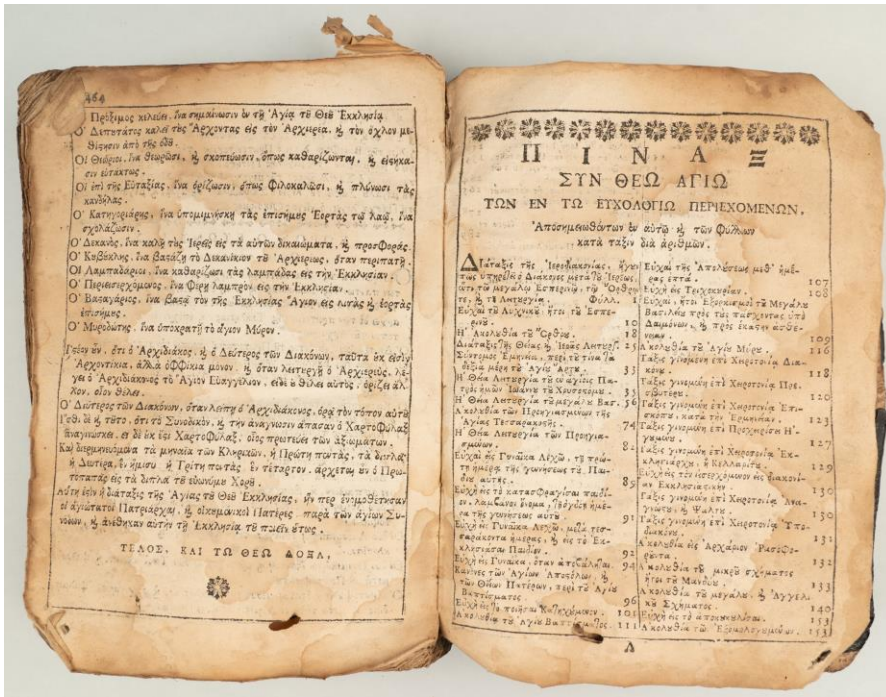 464
Πρόξιμος κελεύει, ἵνα σημαίνωσιν ἐν τῇ Ἁγίᾳ τοῦ Θεοῦ Ἐκκλησίᾳ
Ὁ Δεπουτάτος καλεῖ τοὺς Ἄρχοντας εἰς τὸν Ἀρχιερέα, καὶ τὸν ὄχλον με-
ἀπὸ τῆς ὁδοῦ.
Οἱ Θεωροὶ, ἵνα θεωρῶσι, καὶ σκοπεύωσιν, ὅπως καθαρίζωνται, καὶ
σιν εὐτάκτως.
Οἱ ἐπὶ τῆς Εὐταξίας, ἵνα ὁρίζωσιν, ὅπως Φιλοκαλῶσι, καὶ πλύνωσι τὰς
κανδήλας.
Ὁ Κατηγοριάρης, ἵνα ὑπομιμνήσκῃ τὰς ἐπισήμους Ἑορτὰς τῷ λαῷ, ἵνα
σχολάζωσιν.
Ὁ Δεκανὸς, ἵνα καλῇ τοὺς Ἱερεῖς εἰς τὰ αὐτῶν δικαιώματα, καὶ προσφοράς.
Ὁ βαστάζῃ τὸ Δεκανίκιον τοῦ Ἀρχιερέως, ὅταν περιπατῇ.
Οἱ Λαμπαδάριοι, ἵνα καθαρίζωσι τὰς λαμπάδας εἰς τὴν Ἐκκλησίαν.
Ὁ Περιεισερχόμενος, ἵνα φέρῃ λαμπρὸν εἰς τὴν Ἐκκλησίαν.
Ὁ Βασταγάριος, ἵνα βαστᾷ τὸν τῆς Ἐκκλησίας Ἅγιον εἰς καὶ ἑορτὰς
ἐπισήμους.
Ὁ Μυροδότης, ἵνα ὑποκρατῇ τὸ ἅγιον Μύρον.
ὅτι ὁ Ἀρχιδιάκος, καὶ ὁ Δεύτερος τῶν Διακόνων, ταῦτα οὐκ εἰσὶν
Ἀρχοντίκια, ἀλλὰ ὀφφίκια μόνον, καὶ ὅταν λειτουργῇ ὁ Ἀρχιερεὺς, λέ-
γει ὁ Ἀρχιδιάκονος τὸ Ἅγιον Εὐαγγέλιον, εἰ δὲ οὐ θέλει αὐτὸς, ὁρίζει ἄλ-
λον, οἷον θέλει.
Ὁ Δεύτερος τῶν Διακόνων, ὅταν λείπῃ ὁ Ἀρχιδιάκονος, ὁρᾷ τὸν τόπον αὐτοῦ
καὶ τοῦτο, ὅτι τὸ Συνοδικὸν, καὶ τὴν ἀνάγνωσιν ἅπασαν ὁ Χαρτοφύλαξ
ἀναγινώσκει, εἰ δὲ οὐκ ἔστι Χαρτοφύλαξ, οἷος πρωτεύει τῶν ἀξιωμάτων.
τῶν Κληρικῶν, ἡ Πρώτη ποντὰς, τὰ διπλᾶ
ἡ Δευτέρα, ἓν ἥμισυ, ἡ Τρίτη ποντὰς, ἓν τέταρτον, ἄρχεται οὖν ὁ Πρω-
τοπαπᾶς εἰς τὰ διπλᾶ τοῦ εὐωνύμου Χοροῦ.
Αὕτη ἐστὶν ἡ διάταξις τῆς Ἁγίας τοῦ Θεοῦ Ἐκκλησίας, ἥν περ ἐνομοθέτησαν
οἱ ἁγιώτατοι Πατριάρχαι, καὶ οἰκουμενικοὶ Πατέρες παρὰ τῶν ἁγίων Συ-
νόδων, καὶ ἀνέθηκαν αὐτὴν τῇ Ἐκκλησίᾳ τοῦ ποιεῖν οὕτως.
ΤΕΛΟΣ, ΚΑΙ ΤΩ ΘΕΩ ΔΟΞΑ,
ΠΙΝΑΞ
ΣΥΝ ΘΕΩ ΑΓΙΩ
ΤΩΝ ΕΝ ΤΩ ΕΥΧΟΛΟΓΙΩ ΠΕΡΙΕΧΟΜΕΝΩΝ,
Ἀποσημειωθέντων ἐν αὐτῷ καὶ τῶν Φύλλων
κατὰ τάξιν διὰ ἀριθμῶν.
Διάταξις τῆς Ἱεροδιακονίας, ἤγουν
πῶς ὑπηρετεῖ ὁ Διάκονος μετὰ τοῦ Ἱερέως,
ἔν τε τῷ μεγάλῳ Ἑσπερινῷ, τῷ Ὄρθρῳ
τε, καὶ τῇ Λειτουργίᾳ. Φύλλ. 1
Εὐχαὶ τοῦ Λυχνικοῦ, ἤτοι τοῦ Ἑσπε-
ρινοῦ. 10
Ἡ Ἀκολουθία τοῦ Ὄρθρου. 18
Διάταξις τῆς Θείας καὶ Ἱερᾶς Λειτουργ. 25
Σύντομος Ἑρμηνεία, περὶ τοῦ τίνα
δεξιὰ μέρη τοῦ Ἁγίου Ἄρτου. 33
Ἡ Θεία Λειτουργία τοῦ ἐν ἁγίοις Πα-
τρὸς ἡμῶν Ἰωάννου τοῦ Χρυσοστόμου. 35
Ἡ Θεία Λειτουργία τοῦ μεγάλου Βασ. 56
Ἀκολουθία τῶν Προηγιασμένων τῆς
Ἁγίας Τεσσαρακοστῆς. 74
Ἡ Θεία Λειτουργία τῶν Προηγια-
σμένων.
Εὐχαὶ εἰς Γυναῖκα Λεχὼ, τῇ πρώ-
τῃ ἡμέρᾳ τῆς γεννήσεως τοῦ Παι-
δίου αὐτῆς. 89
Εὐχὴ εἰς τὸ κατασφραγίσαι παιδί-
ον, λαμβάνον ὄνομα, τῇ ὀγδόῃ ἡμέ-
ρᾳ τῆς γεννήσεως αὐτοῦ. 91
Εὐχὴ εἰς Γυναῖκα Λεχὼ, μετὰ τεσ-
σαράκοντα ἡμέρας, καὶ εἰς τὸ Ἐκ-
κλησιάσαι Παιδίον. 92
Εὐχὴ εἰς Γυναῖκα, ὅταν ἀποβάληται. 94
Κανόνες τῶν Ἁγίων Ἀποστόλων, καὶ
τῶν Θείων Πατέρων, περὶ τοῦ Ἁγίου
Βαπτίσματος. 96
Εὐχὴ εἰς τὸ ποιῆσαι Κατηχούμενον. 101
Ἀκολουθία τοῦ Ἁγίου Βαπτίσματος. 111
Εὐχαὶ τῆς Ἀπολούσεως μεθ' ἡμέ-
ρας ἑπτά. 107
Εὐχὴ εἰς Τριχοκουρίαν. 108
Εὐχαὶ, ἤτοι Ἐξορκισμοὶ τοῦ Μεγάλου
Βασιλείου πρὸς τοὺς πάσχοντας ὑπὸ
Δαιμόνων, καὶ πρὸς ἑκάστην ἀσθέ-
νειαν. 109
Ἀκολουθία τοῦ Ἁγίου Μύρου. 116
Τάξις γινομένη ἐπὶ Χειροτονίᾳ Δια-
κόνου. 118
Τάξις γινομένη ἐπὶ Χειροτονίᾳ Πρε-
σβυτέρου. 120
Τάξις γινομένη ἐπὶ Χειροτονίᾳ Ἐπι-
σκόπου, κατὰ τὴν Ἑρμηνείαν. 123
Τάξις γινομένη ἐπὶ Προχειρίσει Ἡ-
γουμένου. 127
Τάξις γινομένη ἐπὶ Χειροτονίᾳ Ἐκ-
κλησιάρχου, ἢ Κελλαρίτου. 129
Εὐχὴ εἰς τὸν εἰσερχόμενον εἰς διακονί-
αν Ἐκκλησιαστικήν. 130
Τάξις γινομένη ἐπὶ Χειροτονίᾳ Ἀνα-
γνώστου, καὶ Ψάλτου. 130
Τάξις γινομένη ἐπὶ Χειροτονίᾳ Ὑπο-
διακόνου. 131
Ἀκολουθία εἰς Ἀρχάριον Ῥασοφο-
ροῦντα. 132
Ἀκολουθία τοῦ μικροῦ σχήματος
ἤτοι τοῦ Μανδύου. 133
Ἀκολουθία τοῦ μεγάλου, καὶ Ἀγγελι-
κοῦ Σχήματος. 140
Εὐχὴ εἰς τὸ ἀποκουκλίσαι. 153
Ἀκολουθία τῶν Ἐξομολογουμένων. 153